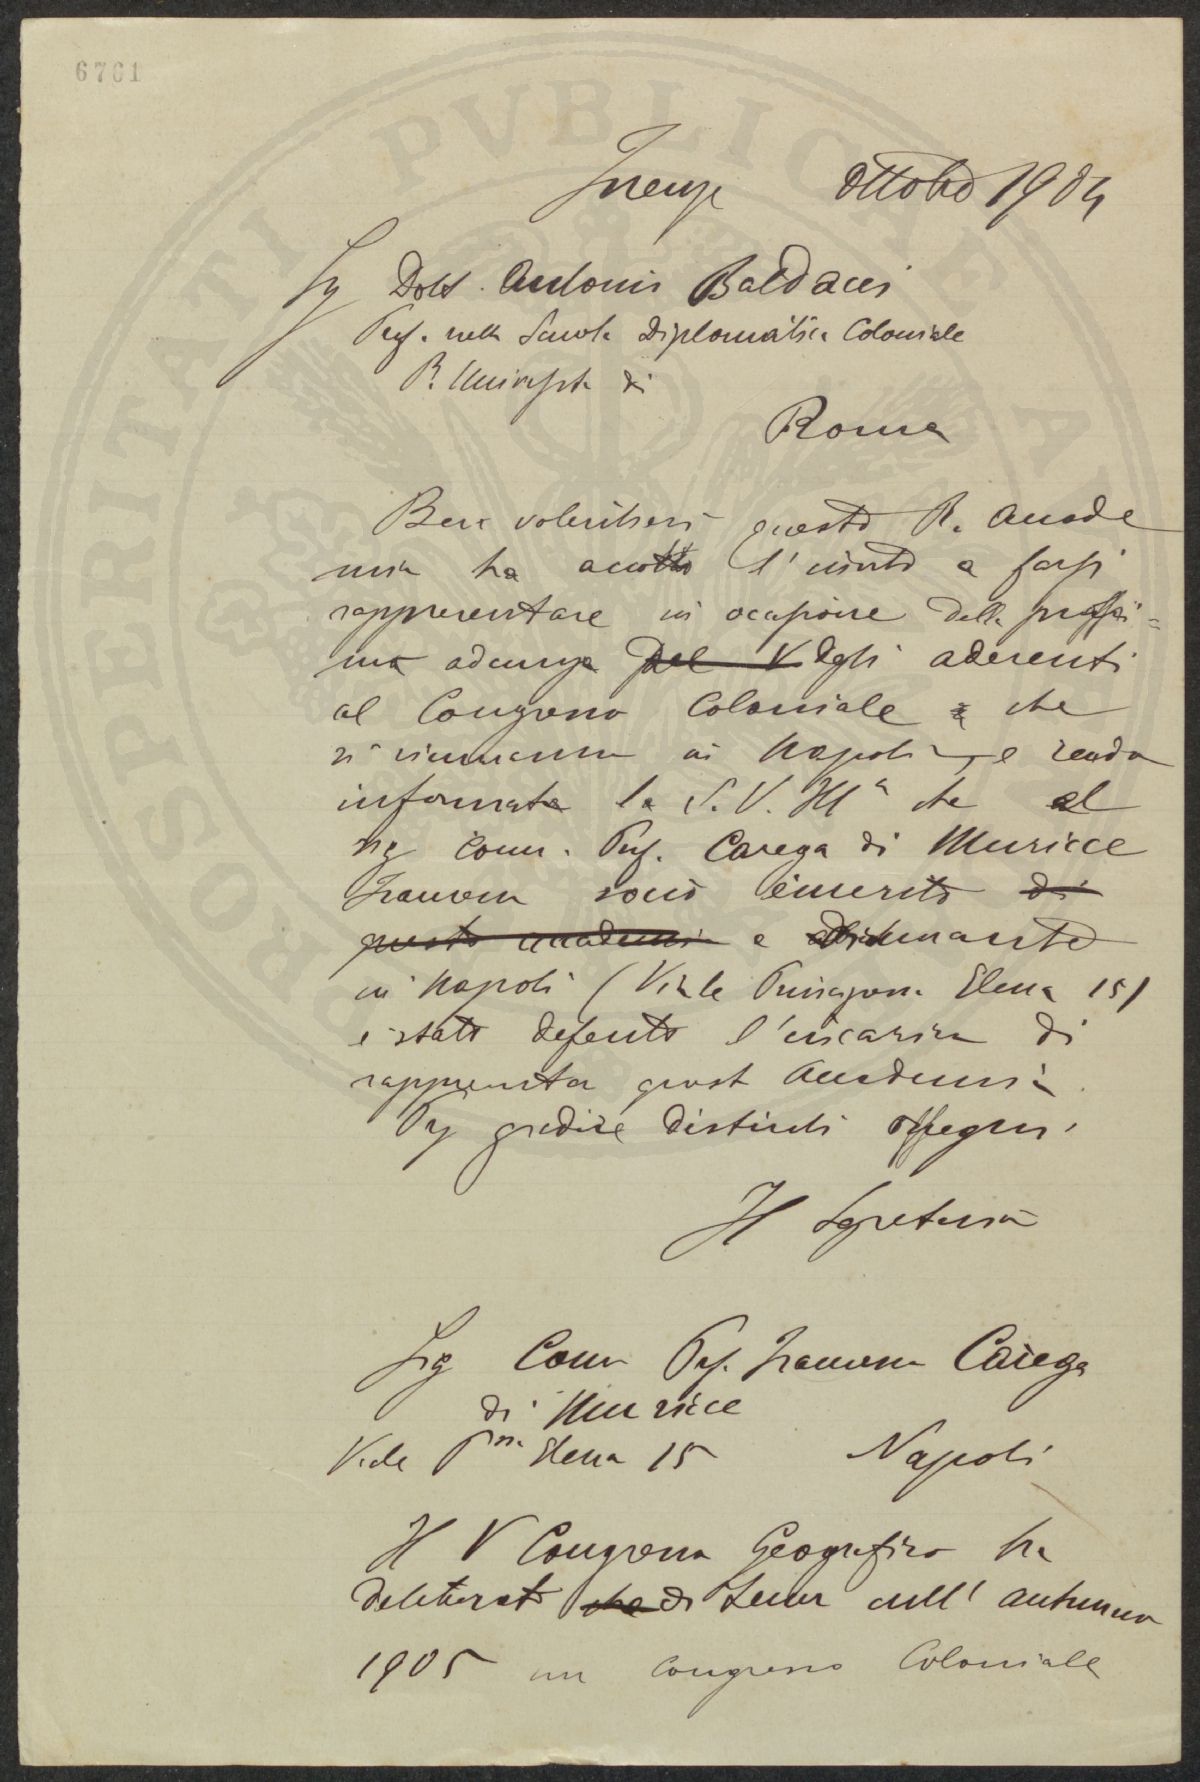 6761
Firenze Ottobre 1904
Sig Dott. Antonio Baldacci
Prof. nella Scuola Diplomatica Coloniale
R. Università di
Roma
Ben volentieri questa R. Accade
mia ha accolto l'invito a farsi
rappresentare in occasione della prossi=
ma adunanza del V degli aderenti
al Congresso Coloniale che
si riuniranno in Napoli, e rendo
informata la S. V. Illa che al
sig comm. Prof. Carega di Muricce
Francesco socio emerito di
questa accademia e dimorante
in Napoli (Viale Principessa Elena 15)
è stato deferito l'incarico di
rappresentar quest Accademia.
Pregi gradire distinti ossequi.
Il Segretario
Sig Comm Prof. Francesco Carega
di Muricce
Viale Pssa Elena 15 Napoli
Il V Congresso Geografico ha
deliberato che di tener nell' autunno
1905 un congresso Coloniale
PROSPERITATI PVBLICAE AV